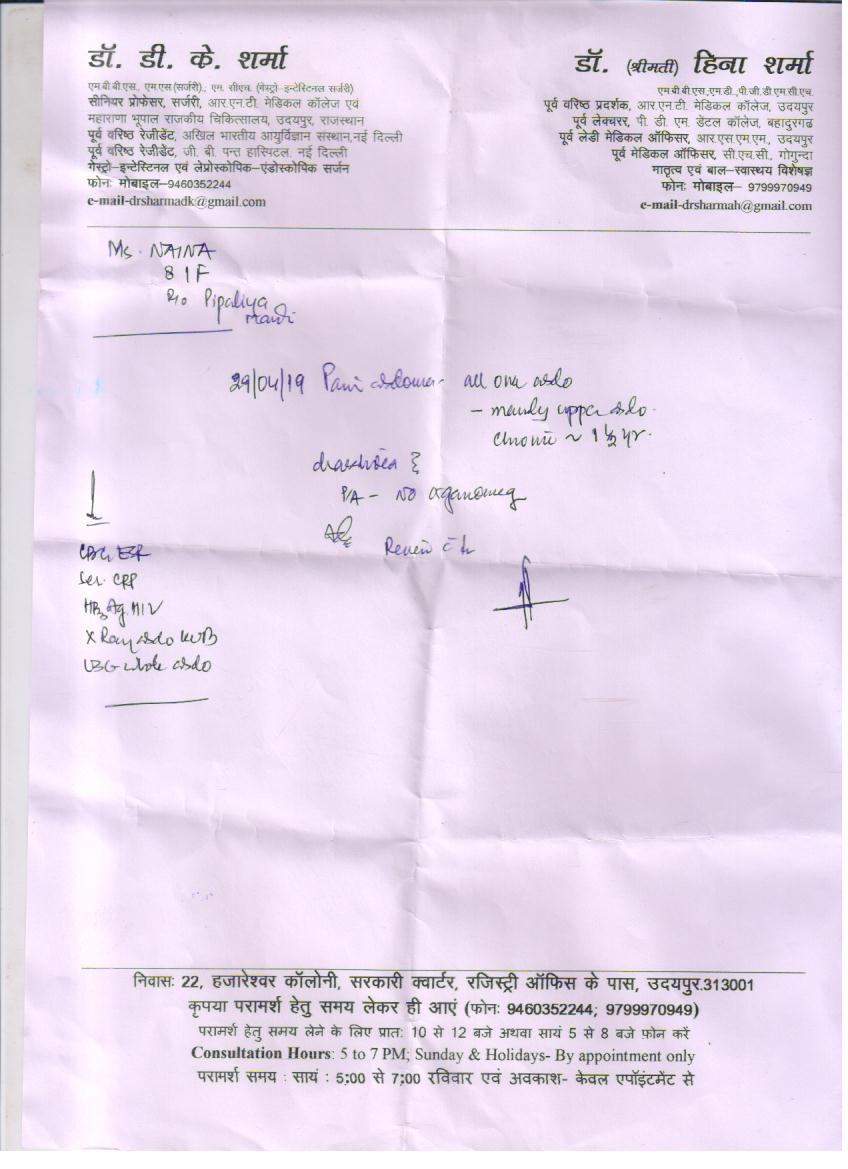 डॉ. डी. के. शर्मा
एम.बी.बी.एस., एम.एस.(सर्जरी).; एम. सीएच. (गेस्ट्रो-इन्टेस्टिनल सर्जरी)
सीनियर प्रोफेसर, सर्जरी, आर.एन.टी. मेडिकल कॉलेज एवं
महाराणा भूपाल राजकीय चिकित्सालय, उदयपुर, राजस्थान
पूर्व वरिष्ठ रेजीडेंट, अखिल भारतीय आयुर्विज्ञान संस्थान,नई दिल्ली
पूर्व वरिष्ठ रेजीडेंट, जी. बी. पन्त हास्पिटल, नई दिल्ली
गेस्ट्रो-इन्टेस्टिनल एवं लेप्रोस्कोपिक-एंडोस्कोपिक सर्जन
फोनः मोबाइल–9460352244
e-mail-drsharmadk@gmail.com
डॉ. (श्रीमती) हिना शर्मा
एम.बी.बी.एस.,एम.डी.,पी.जी.डी.एम.सी.एच.
पूर्व वरिष्ठ प्रदर्शक, आर.एन.टी. मेडिकल कॉलेज, उदयपुर
पूर्व लेक्चरर, पी. डी. एम. डेंटल कॉलेज, बहादुरगढ
पूर्व लेडी मेडिकल ऑफिसर, आर.एस.एम.एम., उदयपुर
पूर्व मेडिकल ऑफिसर, सी.एच.सी., गोगुन्दा
मातृत्व एवं बाल-स्वास्थय विशेषज्ञ
फोनः मोबाइल– 9799970949
e-mail-drsharmah@gmail.com
Ms. NAINA
8 1F
R/o Pipaliya
Mandi
29/04/19 Pain abdomen - all over abdo
- mainly upper abdo.
chronic ~ 1½ yr.
diarrhoea
P/A - No organomeg
Adv
Review c̄ Ix
CBC, ESR
Ser. CRP
HBsAg, HIV
X Ray abdo KUB
USG whole abdo
निवासः 22, हजारेश्वर कॉलोनी, सरकारी क्वार्टर, रजिस्ट्री ऑफिस के पास, उदयपुर.313001
कृपया परामर्श हेतु समय लेकर ही आएं (फोनः 9460352244; 9799970949)
परामर्श हेतु समय लेने के लिए प्रातः 10 से 12 बजे अथवा सायं 5 से 8 बजे फ़ोन करें
Consultation Hours: 5 to 7 PM; Sunday & Holidays- By appointment only
परामर्श समय : सायं : 5;00 से 7;00 रविवार एवं अवकाश- केवल एपॉइंटमेंट से